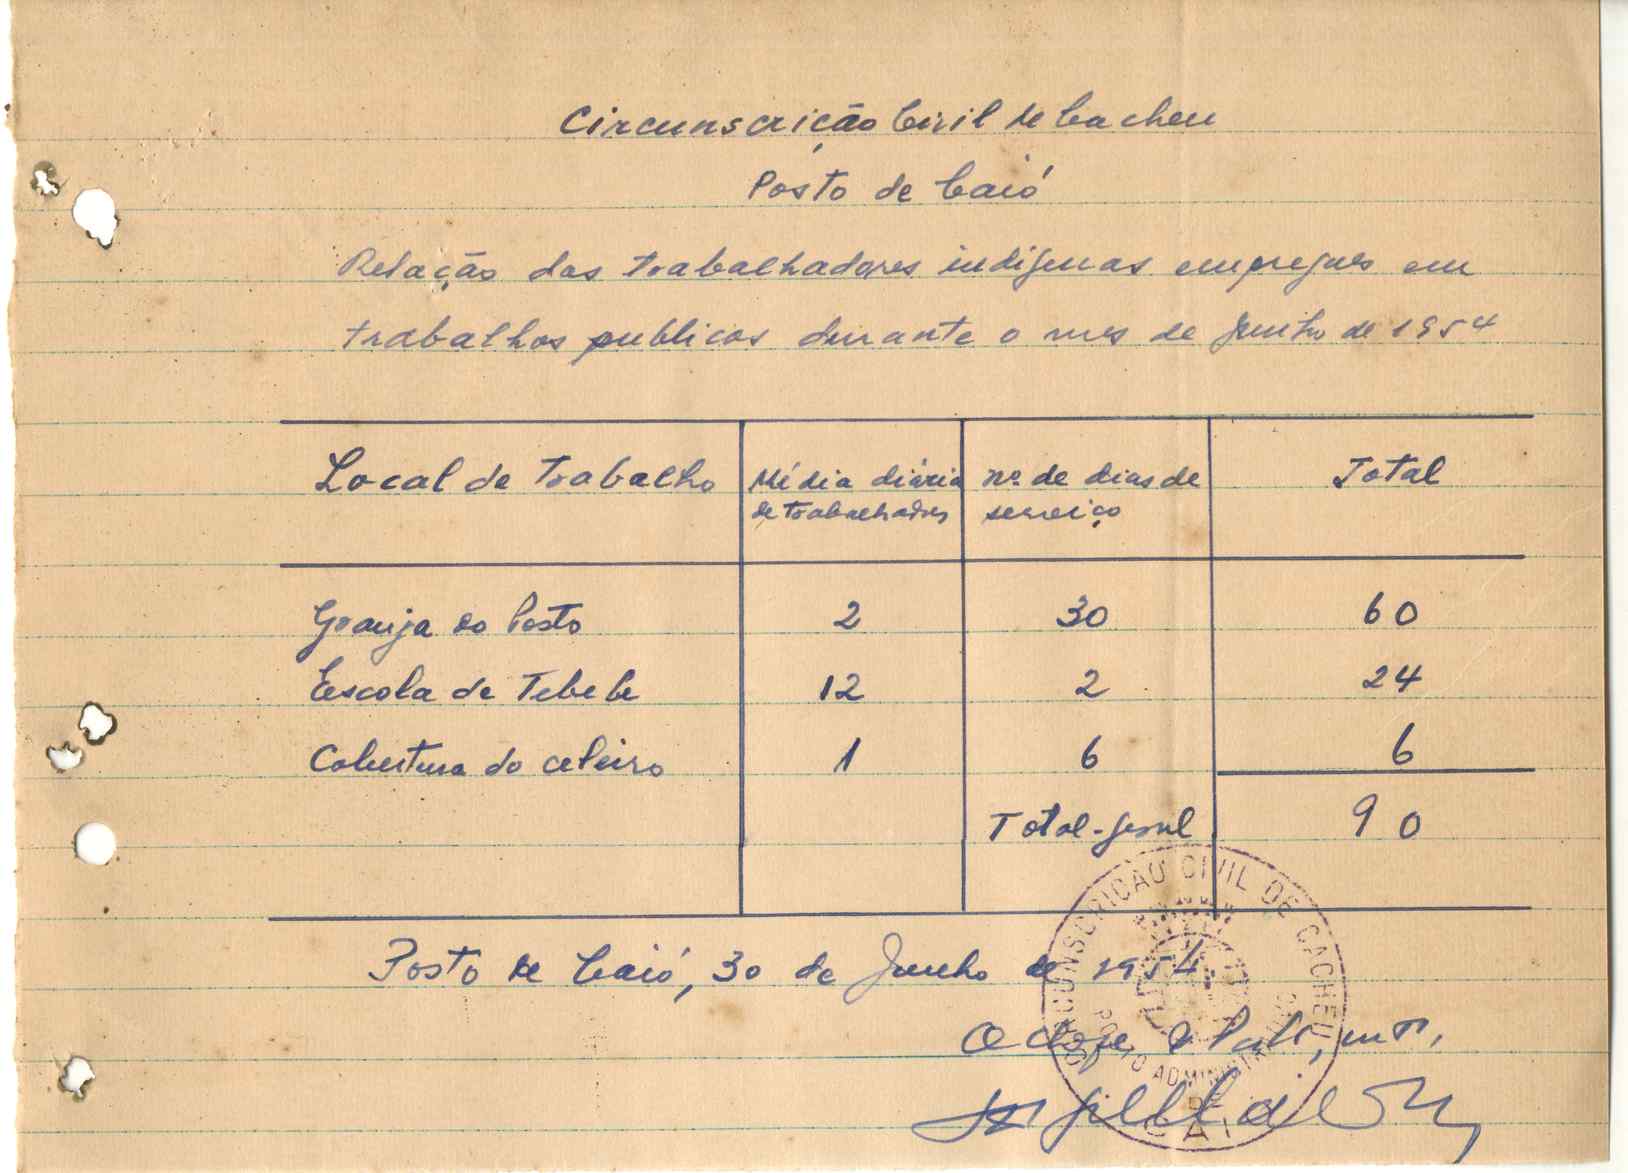 Circunscrição Civil de Cacheu
Posto de Caió
Relação dos trabalhadores indígenas empregues em
trabalhos publicos durante o mes de Junho de 1954
Local de trabalho | Média diária de trabalhadores | nº de dias de serviço | Total
Granja do Posto 2 30 60
Escola de Tebebe 12 2 24
Cobertura do celeiro 1 6 6
Total-geral 90
Posto de Caió, 30 de Junho de 1954
O chefe de Posto, intº,
CIRCUNSCRICAO CIVIL DE CACHEU
POSTO ADMINISTRATIVO
DE
CAIO